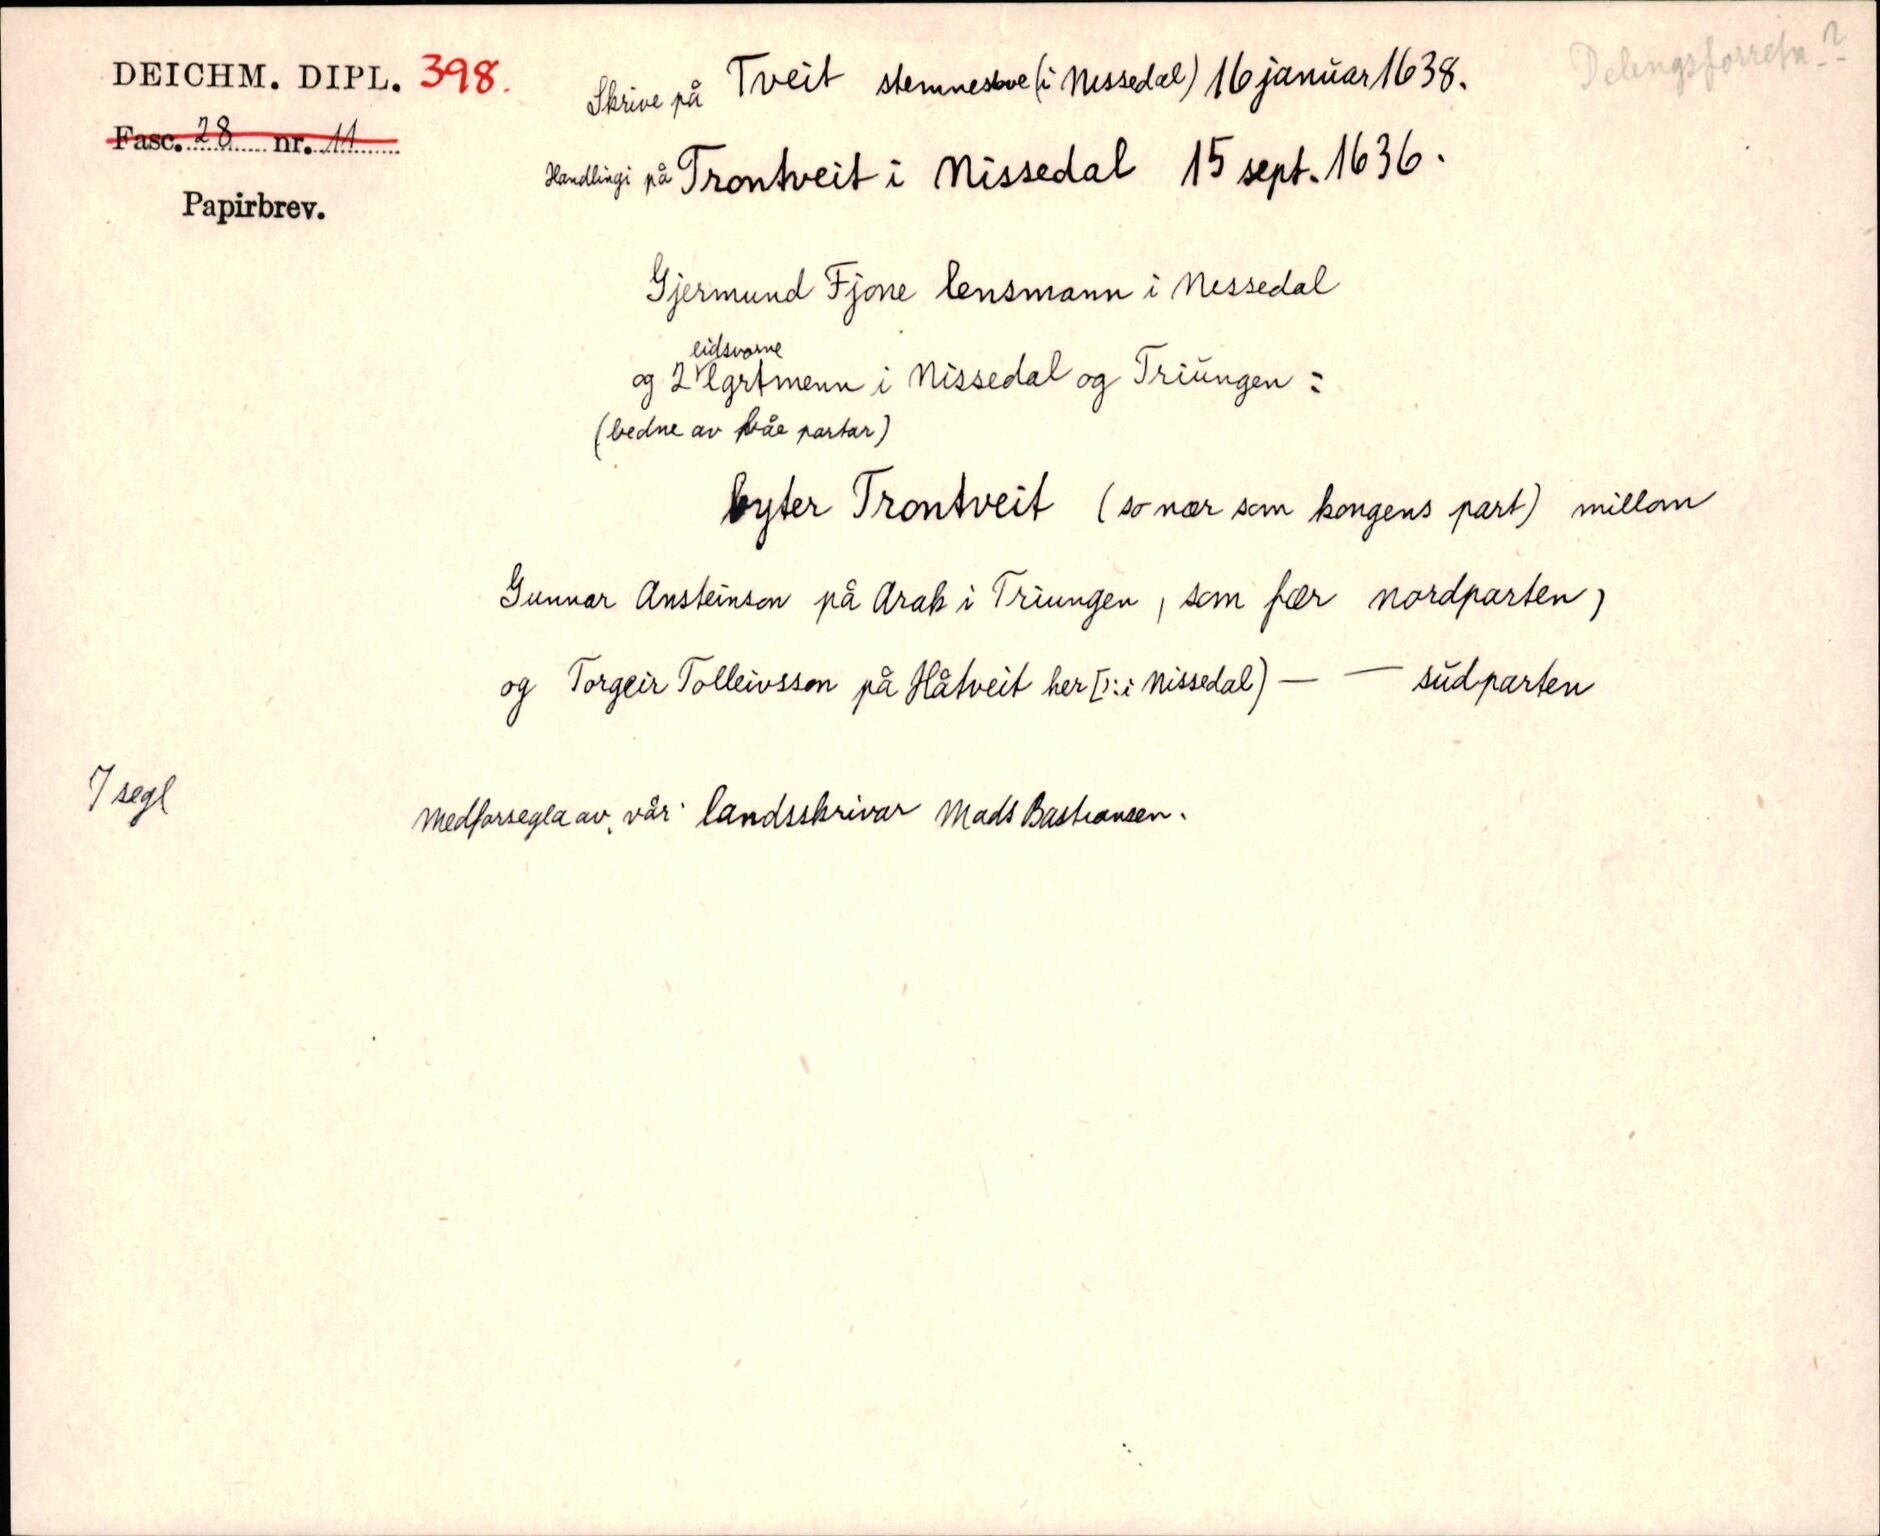 DEICHM. DIPL. 398.
Fasc. 28 nr. 11
Papirbrev.
Delingsforretn.?
Skrive på Tveit stemnestove (i Nissedal) 16 januar 1638.
Handlingi på Trontveit i Nissedal 15 sept. 1636.
Gjermund Fjone lensmann i Nissedal
eidsvorne
og 2 lgrtmenn i Nissedal og Triungen :
(bedne av båe partar)
byter Trontveit (so nær som kongens part) millom
Gunnar Ansteinson på Arak i Triungen, som fær nordparten,
og Torgeir Tolleivsson på Håtveit her [ɔ: i Nissedal) — — sudparten
7 segl
Medforsegla av, vår landsskrivar Mads Bastiansen.